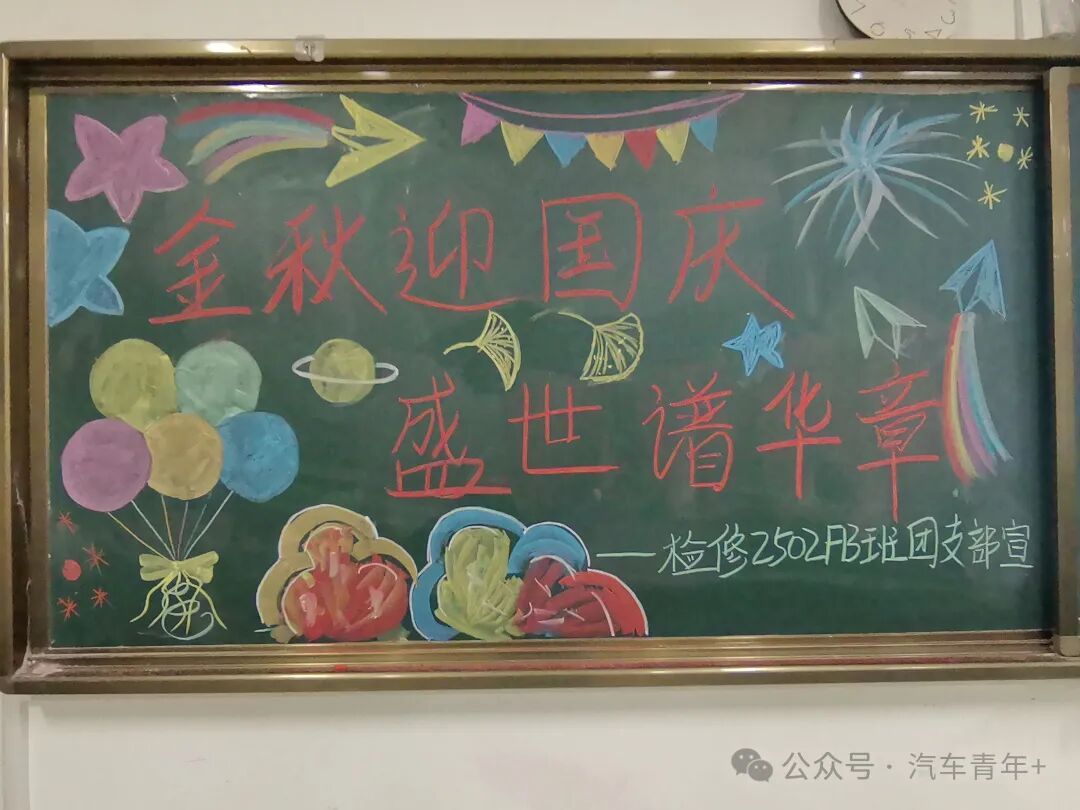 金秋迎国庆
盛世谱华章
——检修2502FB班团支部宣
公众号·汽车青年+